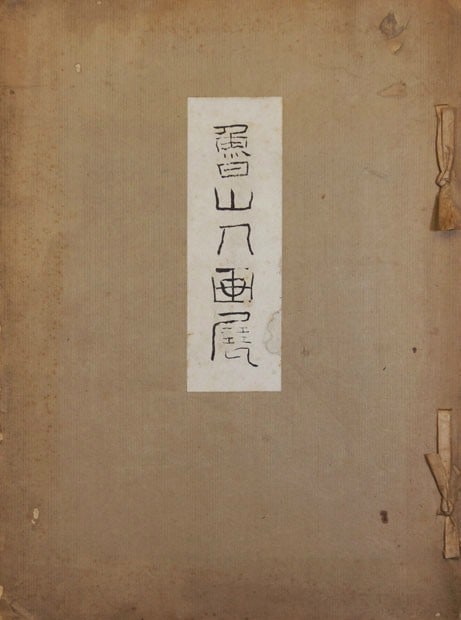 魯山人画展